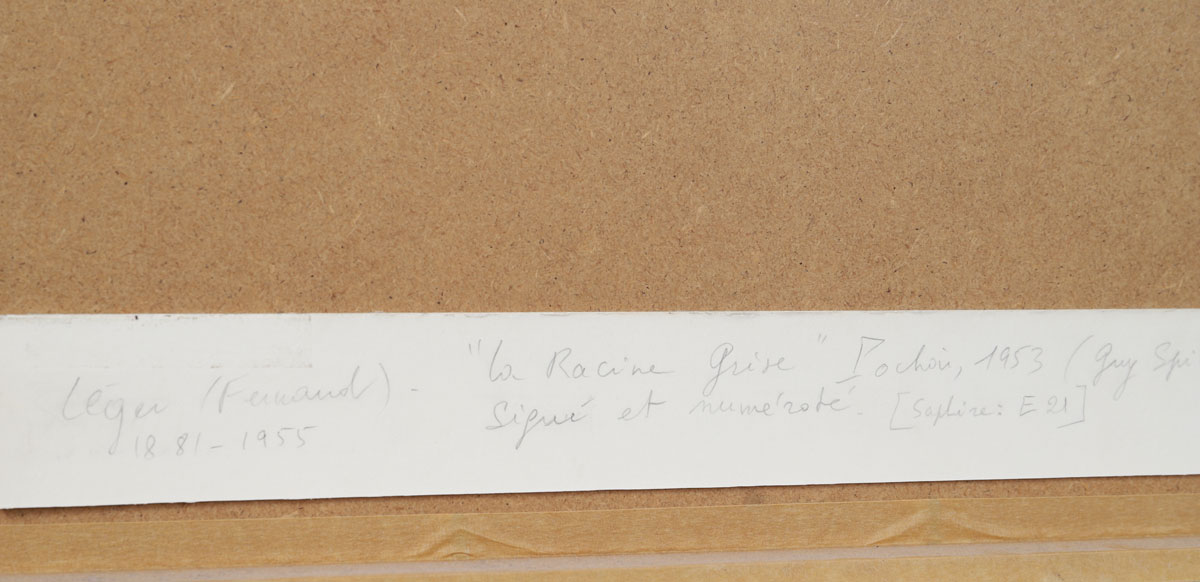 Léger (Fernand). -
1881 - 1955
"La Racine Grise" Pochoir, 1953 (Guy Spi
Signé et numéroté. [Saphire: E 21]